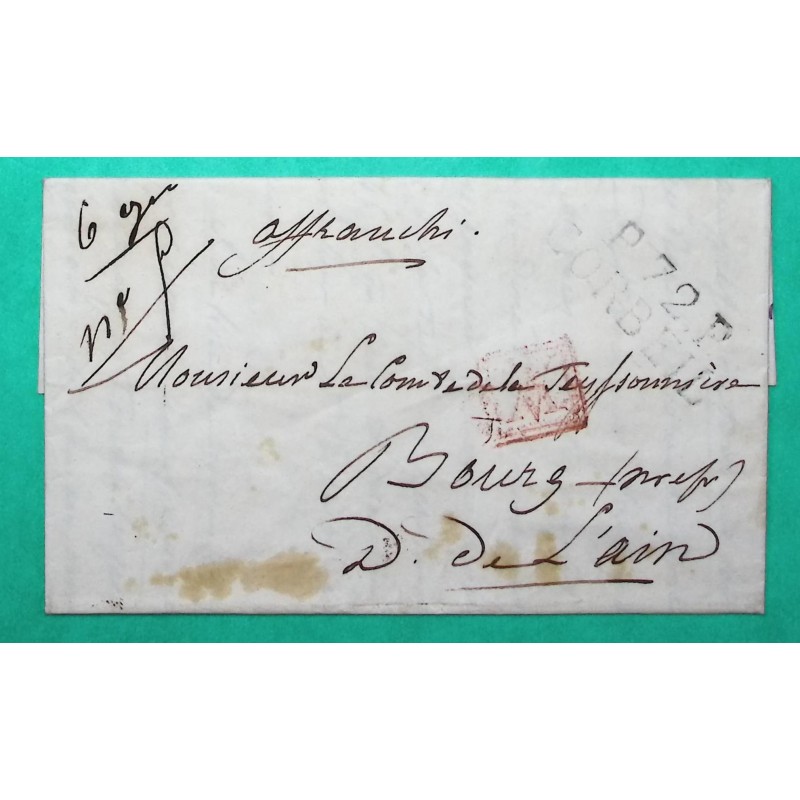 6
affranchi.
P.72.P
CORBEIL
n°
Monsieur Le Comte de la Teyssonnière
Bourg (
D. de L'ain